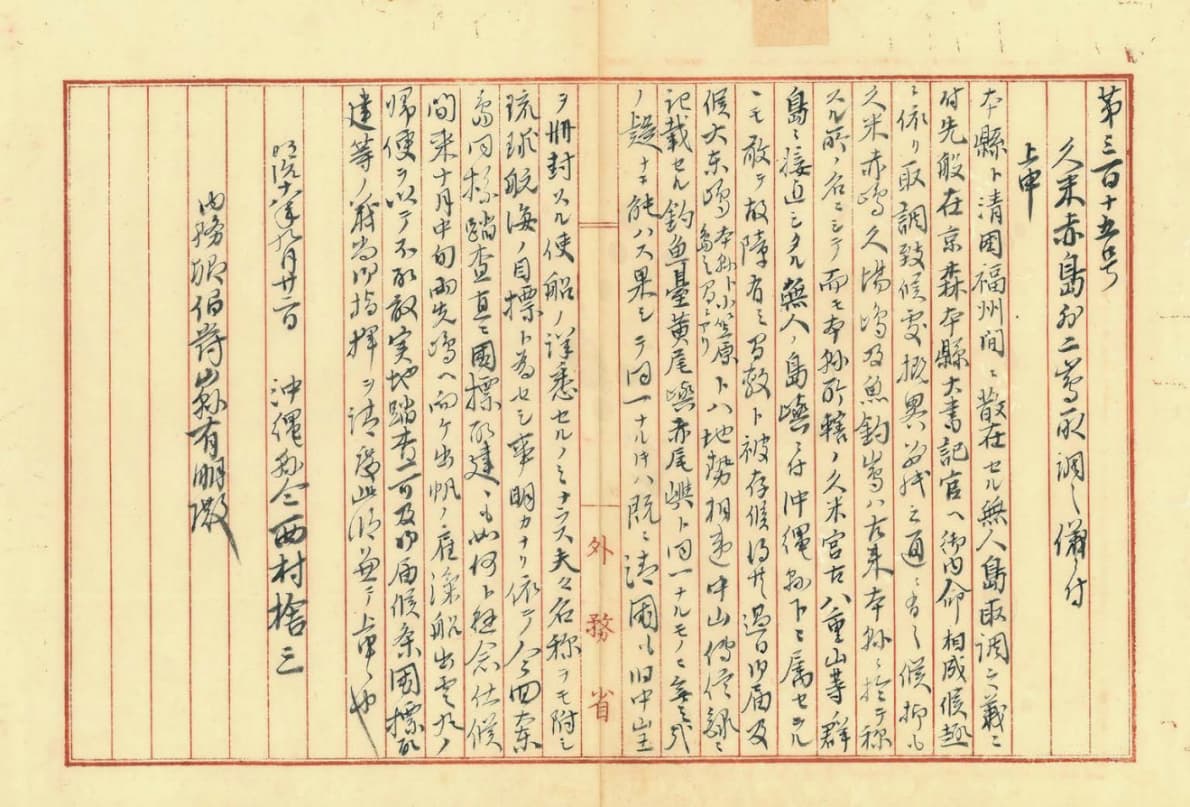 第三百十五号
久米赤島外二島取調之儀ニ付
上申
本縣ト清国福州間ニ散在セル無人島取調之義ニ
付先般在京森本縣大書記官ヘ御内命相成候趣
ニ依リ取調致候処概略別紙之通ニ有之候抑モ
久米赤嶋久場嶋及魚釣嶋ハ古来本縣ニ於テ称
スル所ノ名ニシテ而モ本縣所轄ノ久米宮古八重山等群
島ニ接近シタル無人ノ島嶼ニ付沖縄縣下ニ属セラルヽ
モ敢テ故障有之間敷ト被存候得共過日御届及
候大東嶋本縣ト小笠原島之間ニアリトハ地勢相違中山傳信録ニ
記載セル釣魚臺黄尾嶼赤尾嶼ト同一ナルモノニ無之哉
ノ疑ナキ能ハス果シテ同一ナルトキハ既ニ清国モ旧中山王
ヲ冊封スル使船ノ詳悉セルノミナラス夫々名称ヲモ附シ
琉球航海ノ目標ト為セシ事明カナリ依テ今回大東
島同様踏査直ニ國標取建候モ如何ト懸念仕候
間来十月中旬両先嶋ヘ向ケ出帆ノ雇滊船出雲丸ノ
帰便ヲ以テ不取敢実地踏査可及御届候条国標取
建等ノ義尚御指揮ヲ請度此段兼テ上申候也
明治十八年九月廿二日　沖縄縣令西村捨三
内務卿伯爵山縣有朋殿
外務省